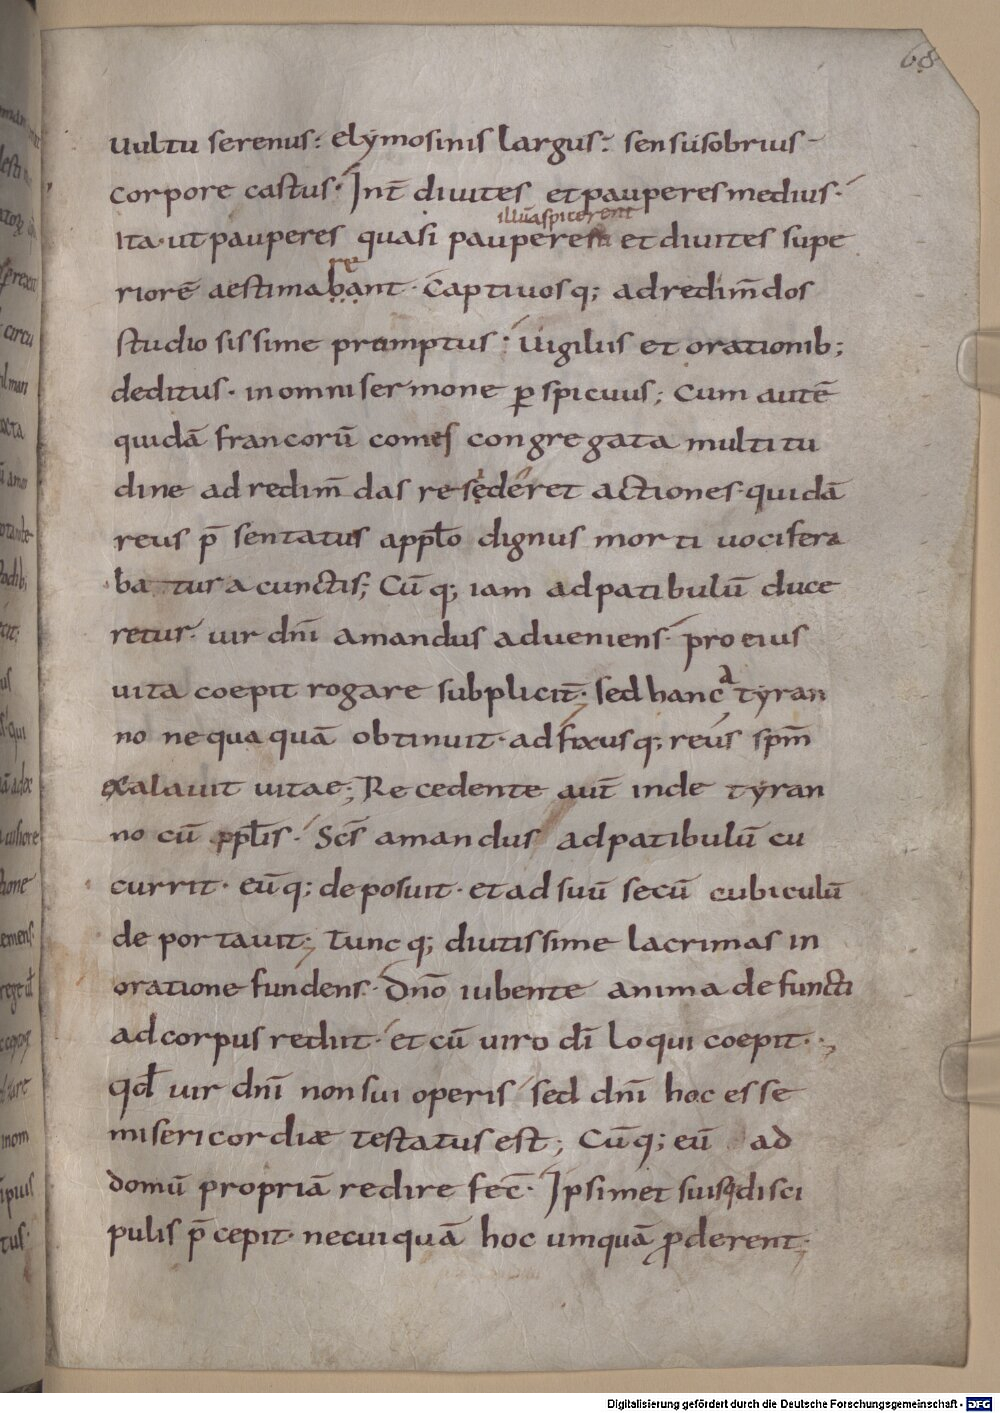 68
uultu serenus: elymosinis largus: sensu sobrius
corpore castus. Int̄ diuites et pauperes medius.
illū aspicerent
ita ut pauperes quasi pauperem et diuites supe
re
riorē aestimabant. Captiuosq; ad redim̄dos
studiosissime promptus. Uigiliis et orationib;
deditus. in omni sermone ꝑspicuus; Cum autē
quidā francorū comes congregata multitu
dine ad redim̄das resęderet actiones. quidā
reus p̄sentatus app̄lo dignus morti uocifera
batur a cunctis; Cūq; iam ad patibulū duce
retur. uir dn̄i amandus adueniens. pro eius
uita coepit rogare subplicit̄. sed hanc a tyran
no nequaquā obtinuit. adfixusq; reus sp̄m
exalauit uitae; Recedente aut̄ inde tyran
no cū pp̄lis. Sc̄s amandus ad patibulū cu
currit. eūq; deposuit. et ad suū secū cubiculū
deportauit; Tuncq; diutissime lacrimas in
oratione fundens. Dn̄o iubente anima defuncti
ad corpus rediit. et cū uiro dī loqui coepit.
qđ uir dn̄i non sui operis sed dn̄i hoc esse
misericordiæ testatus est; Cūq; eū ad
domū propriā redire fec̄. Ipsimet suisq; disci
pulis p̄cepit. necuiquā hoc umquā ꝓderent;
Digitalisierung gefördert durch die Deutsche Forschungsgemeinschaft - DFG